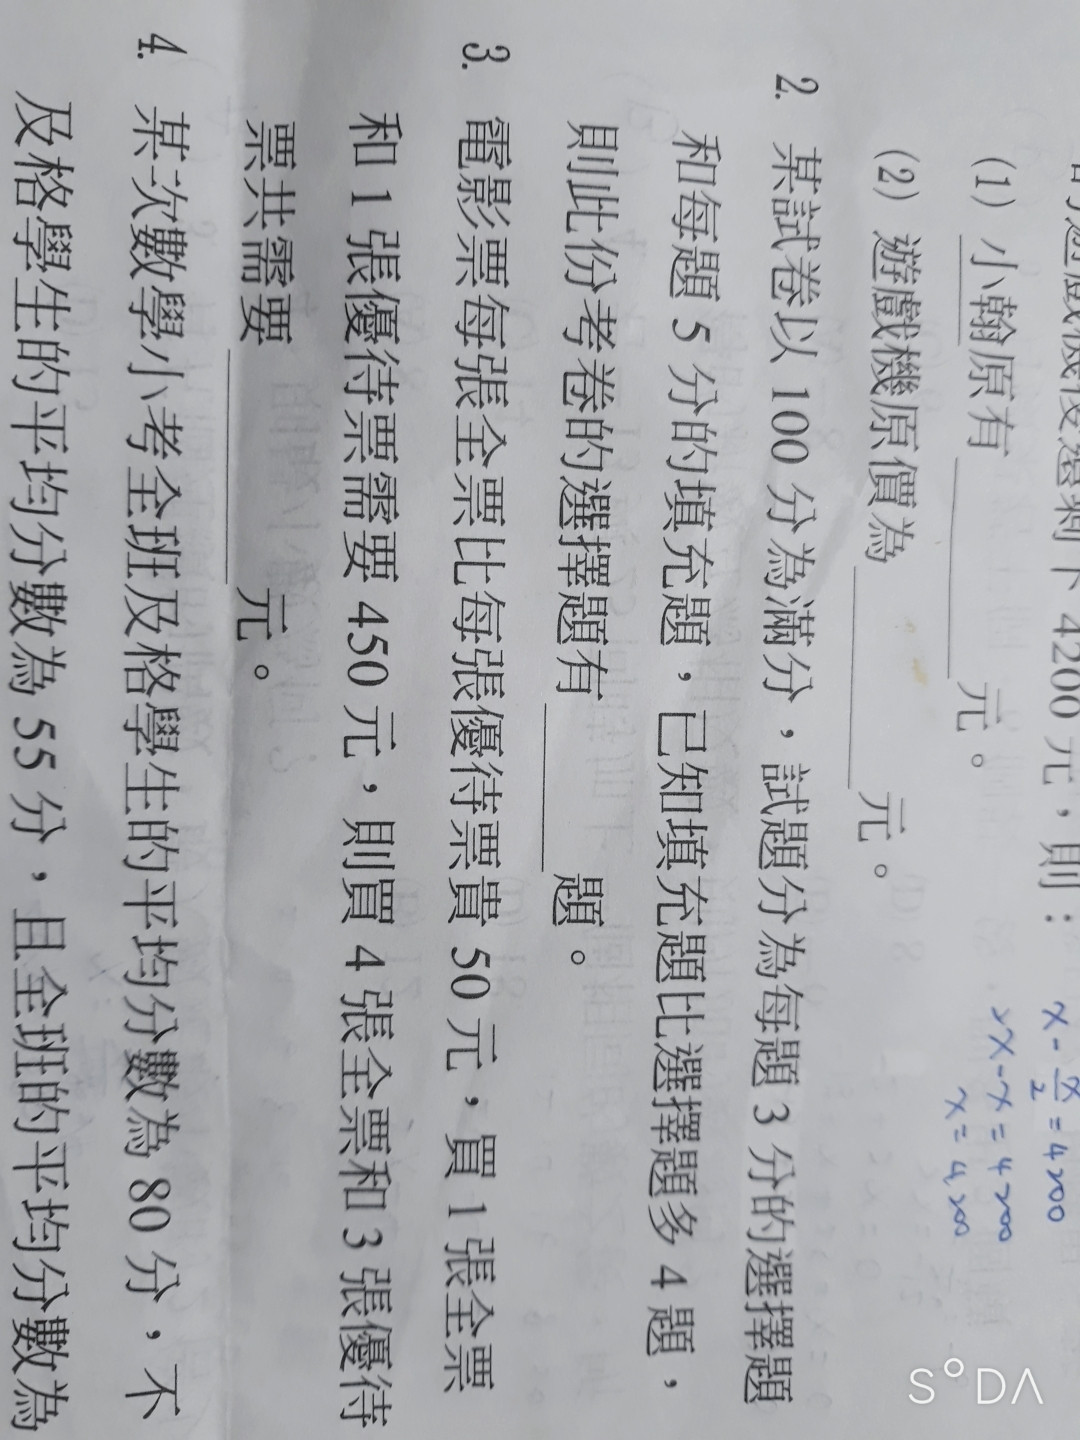 的遊戲機後還剩下 4200 元，則：
(1) 小翰原有　　　　元。
(2) 遊戲機原價為　　　　元。
x - x/2 = 4200
2x - x = 4200
x = 4200
2. 某試卷以 100 分為滿分，試題分為每題 3 分的選擇題
和每題 5 分的填充題，已知填充題比選擇題多 4 題，
則此份考卷的選擇題有　　　　題。
3. 電影票每張全票比每張優待票貴 50 元，買 1 張全票
和 1 張優待票需要 450 元，則買 4 張全票和 3 張優待
票共需要　　　　元。
4. 某次數學小考全班及格學生的平均分數為 80 分，不
及格學生的平均分數為 55 分，且全班的平均分數為
SODA